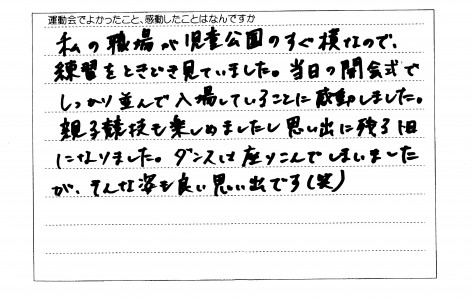 運動会でよかったこと、感動したことはなんですか
私の職場が児童公園のすぐ横なので、
練習をときどき見ていました。当日の開会式で
しっかり並んで入場していることに感動しました。
親子競技も楽しめましたし思い出に残る1日
になりました。ダンスは座りこんでしまいました
が、そんな姿も良い思い出です(笑)